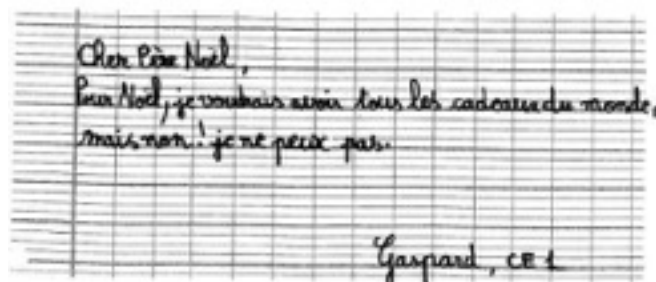 Cher Père Noël,
Pour Noël, je voudrais avoir tous les cadeaux du monde,
mais non ! je ne peux pas.
Gaspard, CE1